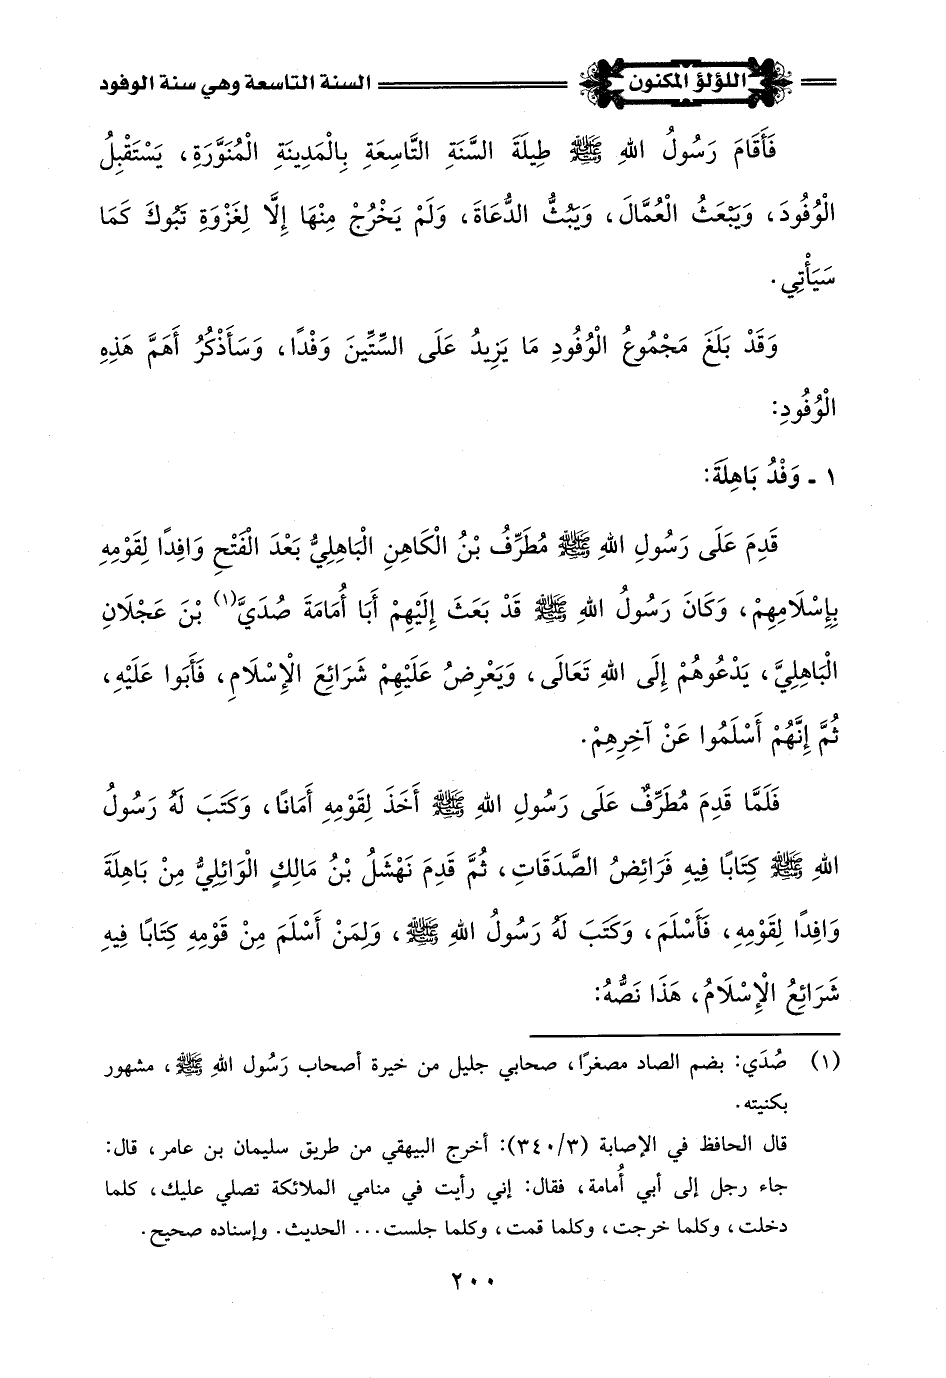 اللؤلؤ المكنون السنة التاسعة وهي سنة الوفود
فَأَقَامَ رَسُولُ اللهِ ﷺ طِيلَةَ السَّنَةِ التَّاسِعَةِ بِالْمَدِينَةِ الْمُنَوَّرَةِ، يَسْتَقْبِلُ
الْوُفُودَ، وَيَبْعَثُ الْعُمَّالَ، وَيَبُثُّ الدُّعَاةَ، وَلَمْ يَخْرُجْ مِنْهَا إِلَّا لِغَزْوَةِ تَبُوكَ كَمَا
سَيَأْتِي.
وَقَدْ بَلَغَ مَجْمُوعُ الْوُفُودِ مَا يَزِيدُ عَلَى السِّتِّينَ وَفْدًا، وَسَأَذْكُرُ أَهَمَّ هَذِهِ
الْوُفُودِ:
١ - وَفْدُ بَاهِلَةَ:
قَدِمَ عَلَى رَسُولِ اللهِ ﷺ مُطَرِّفُ بْنُ الْكَاهِنِ الْبَاهِلِيُّ بَعْدَ الْفَتْحِ وَافِدًا لِقَوْمِهِ
بِإِسْلَامِهِمْ، وَكَانَ رَسُولُ اللهِ ﷺ قَدْ بَعَثَ إِلَيْهِمْ أَبَا أُمَامَةَ صُدَيَّ(١) بْنَ عَجْلَانِ
الْبَاهِلِيَّ، يَدْعُوهُمْ إِلَى اللهِ تَعَالَى، وَيَعْرِضُ عَلَيْهِمْ شَرَائِعَ الْإِسْلَامِ، فَأَبَوا عَلَيْهِ،
ثُمَّ إِنَّهُمْ أَسْلَمُوا عَنْ آخِرِهِمْ.
فَلَمَّا قَدِمَ مُطَرِّفٌ عَلَى رَسُولِ اللهِ ﷺ أَخَذَ لِقَوْمِهِ أَمَانًا، وَكَتَبَ لَهُ رَسُولُ
اللهِ ﷺ كِتَابًا فِيهِ فَرَائِضُ الصَّدَقَاتِ، ثُمَّ قَدِمَ نَهْشَلُ بْنُ مَالِكٍ الْوَائِلِيُّ مِنْ بَاهِلَةَ
وَافِدًا لِقَوْمِهِ، فَأَسْلَمَ، وَكَتَبَ لَهُ رَسُولُ اللهِ ﷺ، وَلِمَنْ أَسْلَمَ مِنْ قَوْمِهِ كِتَابًا فِيهِ
شَرَائِعُ الْإِسْلَامُ، هَذَا نَصُّهُ:
(١) صُدَي: بضم الصاد مصغرًا، صحابي جليل من خيرة أصحاب رَسُول اللهِ ﷺ، مشهور
بكنيته.
قال الحافظ في الإصابة (٣٤٠/٣): أخرج البيهقي من طريق سليمان بن عامر، قال:
جاء رجل إلى أبي أُمامة، فقال: إني رأيت في منامي الملائكة تصلي عليك، كلما
دخلت، وكلما خرجت، وكلما قمت، وكلما جلست... الحديث. وإسناده صحيح.
٢٠٠